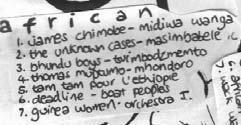 african
1. james chimobe - midiwa wanga
2. the unknown cases - masimbabele
3. bhundu boys - tsvimbodzemoto
4. thomas mapfumo - mhondoro
5. tam tam pour l'ethiopie
6. deadline - boat peoples
7. guinea women - orchestra I.